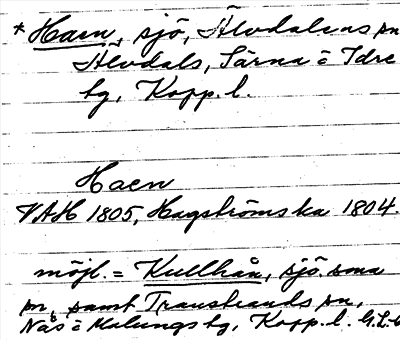 * Haen, sjö, Älvdalens sn
Älvdals, Särna o Idre
tg, Kopp. l.
Haen
VAH 1805, Hagströms ka 1804.
möjl. = Kullhån, sjö sma
sn, samt Transtrands sn,
Nås o Malungs tg, Kopp. l. G.L.